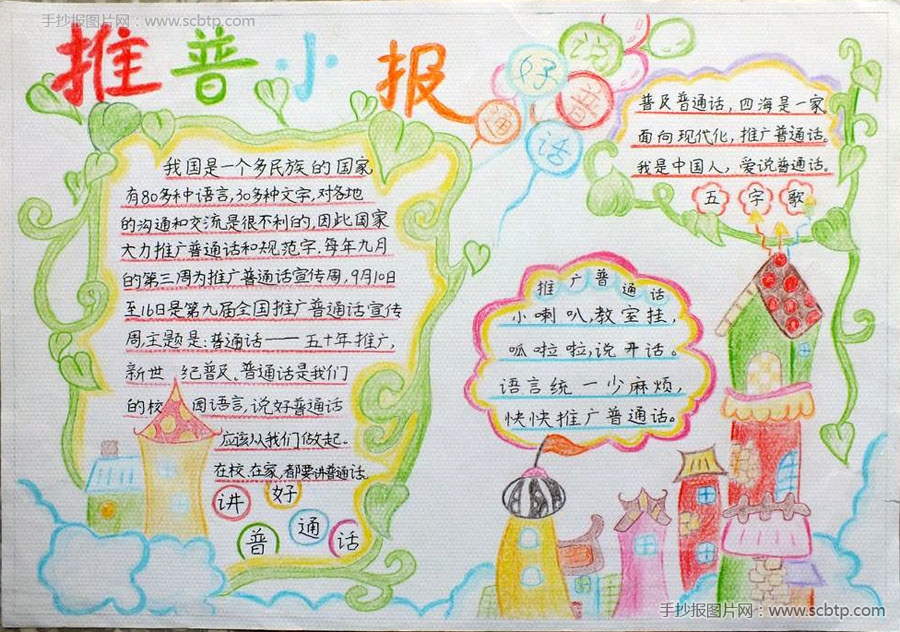 手抄报图片网：www.scbtp.com
推普小报
说好普通话
我国是一个多民族的国家,
有80多种语言,30多种文字,对各地
的沟通和交流是很不利的,因此国家
大力推广普通话和规范字.每年九月
的第三周为推广普通话宣传周,9月10日
至16日是第九届全国推广普通话宣传
周主题是:普通话——五十年推广,
新世纪普及.普通话是我们
的校园语言,说好普通话
应该从我们做起。
在校.在家,都要讲普通话.
讲好
普通话
普及普通话，四海是一家
面向现代化，推广普通话.
我是中国人，爱说普通话。
五字歌
推广普通话
小喇叭,教室挂,
呱啦啦,说开话。
语言统一少麻烦,
快快推广普通话。
手抄报图片网：www.scbtp.com